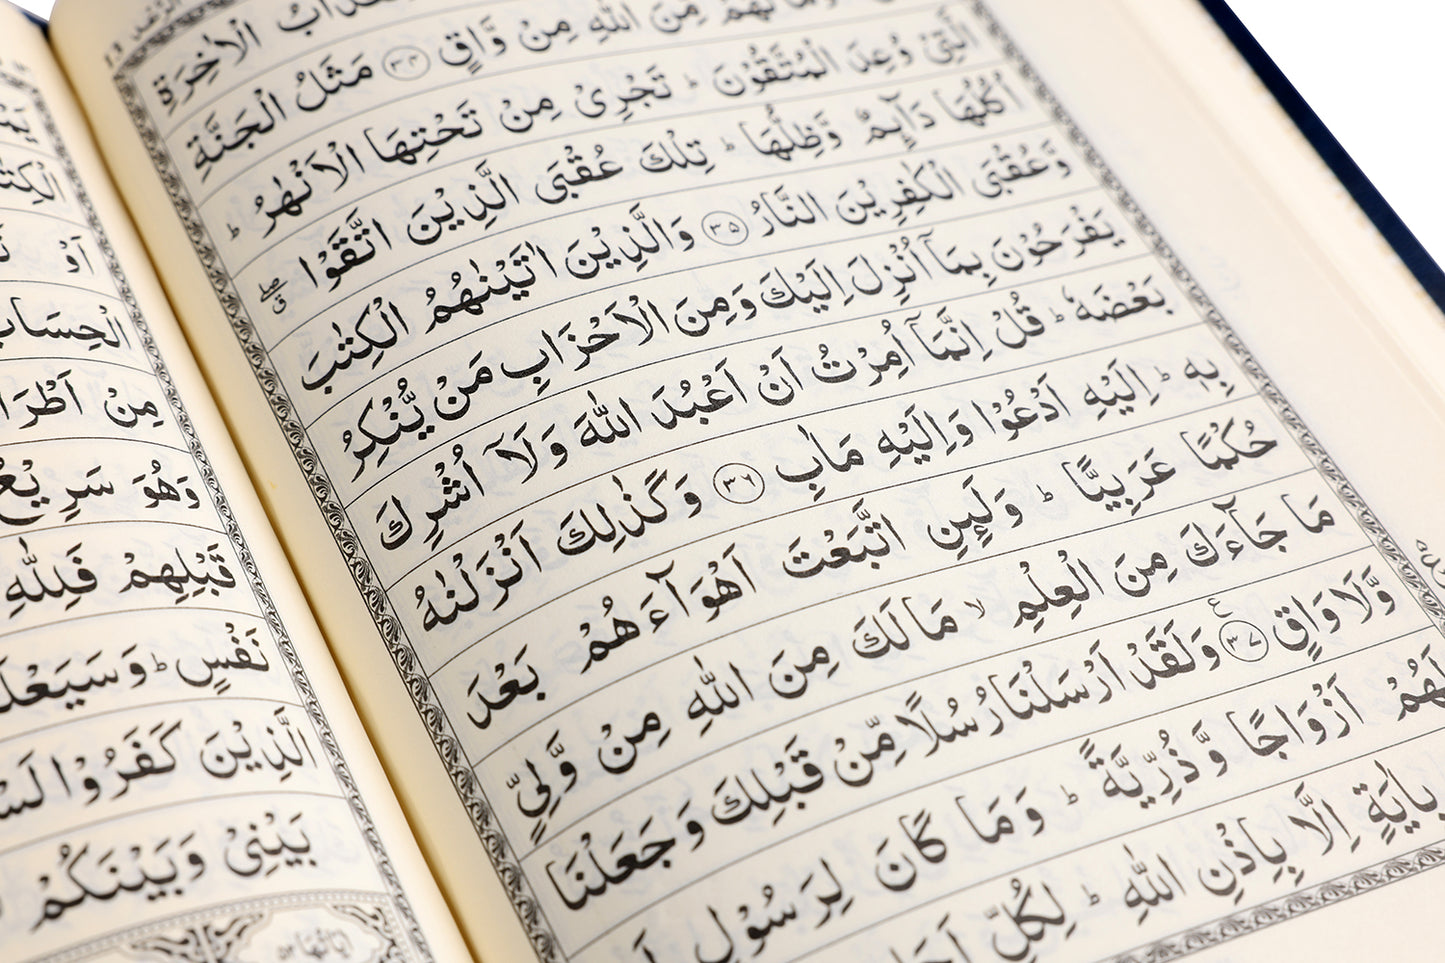 عَذَابُ الْاٰخِرَةِ
لَهُمْ مِّنَ اللّٰهِ مِنْ وَّاقٍ ﴿۳۴﴾ مَثَلُ الْجَنَّةِ
الَّتِيْ وُعِدَ الْمُتَّقُوْنَ ؕ تَجْرِيْ مِنْ تَحْتِهَا الْاَنْهٰرُ ؕ
اُكُلُهَا دَآىِٕمٌ وَّظِلُّهَا ؕ تِلْكَ عُقْبَى الَّذِيْنَ اتَّقَوْا ۖق
وَّعُقْبَى الْكٰفِرِيْنَ النَّارُ ﴿۳۵﴾ وَالَّذِيْنَ اٰتَيْنٰهُمُ الْكِتٰبَ
يَفْرَحُوْنَ بِمَاۤ اُنْزِلَ اِلَيْكَ وَمِنَ الْاَحْزَابِ مَنْ يُّنْكِرُ
بَعْضَهٗ ؕ قُلْ اِنَّمَاۤ اُمِرْتُ اَنْ اَعْبُدَ اللّٰهَ وَلَاۤ اُشْرِكَ
بِهٖ ؕ اِلَيْهِ اَدْعُوْا وَاِلَيْهِ مَاٰبِ ﴿۳۶﴾ وَكَذٰلِكَ اَنْزَلْنٰهُ
حُكْمًا عَرَبِيًّا ؕ وَلَىِٕنِ اتَّبَعْتَ اَهْوَآءَهُمْ بَعْدَ
مَا جَآءَكَ مِنَ الْعِلْمِ ۙ مَا لَكَ مِنَ اللّٰهِ مِنْ وَّلِيٍّ
وَّلَا وَاقٍ ﴿۳۷﴾ ع وَلَقَدْ اَرْسَلْنَا رُسُلًا مِّنْ قَبْلِكَ وَجَعَلْنَا
لَهُمْ اَزْوَاجًا وَّذُرِّيَّةً ؕ وَمَا كَانَ لِرَسُوْلٍ
بِاٰيَةٍ اِلَّا بِاِذْنِ اللّٰهِ ؕ لِكُلِّ
اَوْ
الْحِسَابُ
مِنْ
وَهُوَ سَرِيْعُ
قَبْلِهِمْ فَلِلّٰهِ
نَفْسٍ ؕ وَسَيَعْلَمُ
الَّذِيْنَ كَفَرُوْا
بَيْنِيْ وَبَيْنَكُمْ